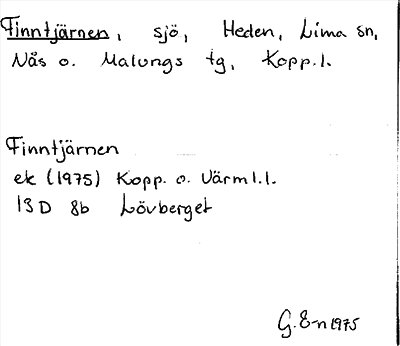 Finntjärnen, sjö, Heden, Lima sn,
Nås o. Malungs tg, Kopp. l.
Finntjärnen
ek (1975) Kopp. o. Värml. l.
13 D 8b Lövberget
G. E-n 1975